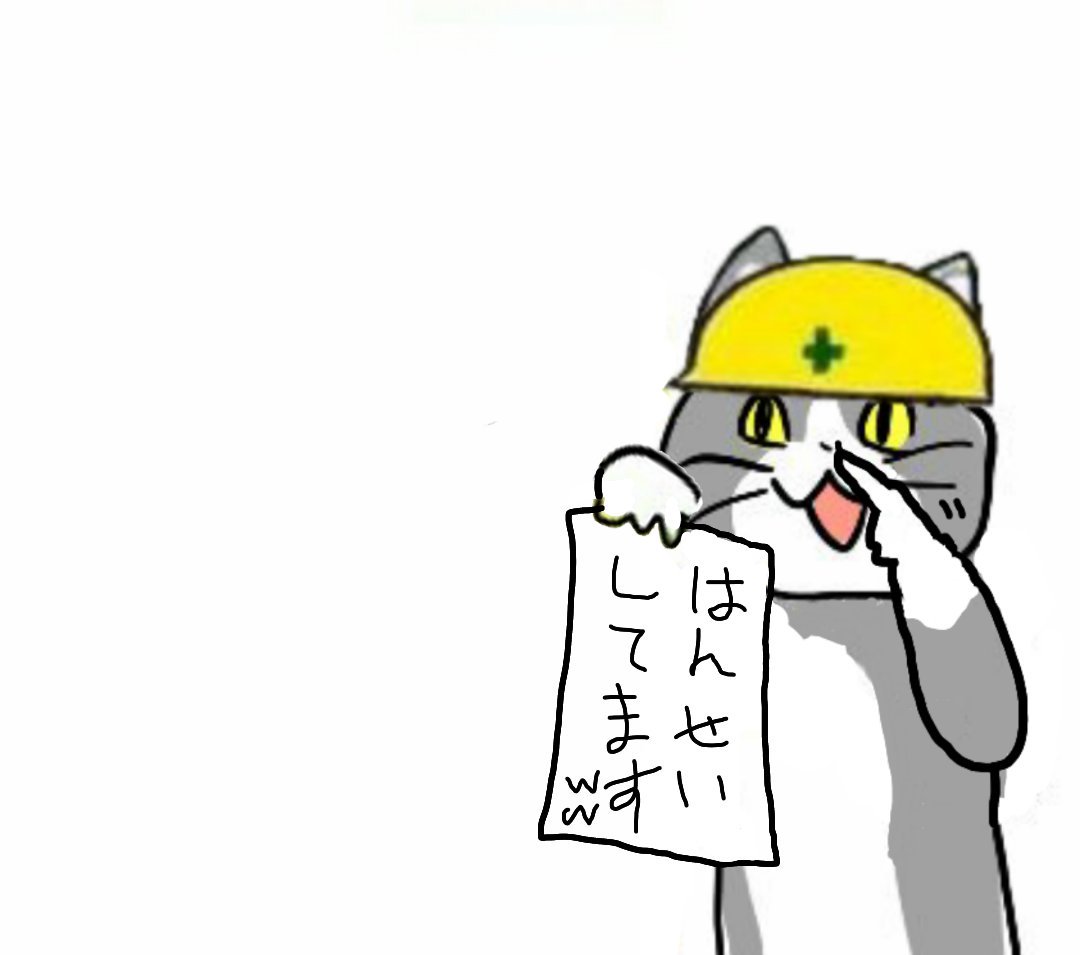 はんせい
してます
ww